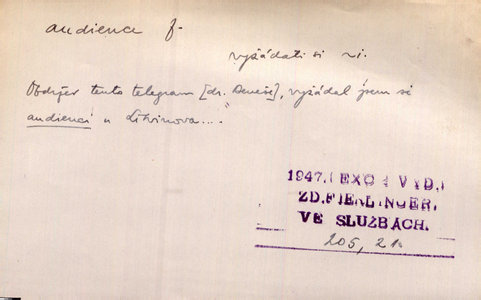 audience f.
vyžádati si ~i.
Obdržev tento telegram [dr. Beneše], vyžádal jsem si
audienci u Litvinova..."
1947. (EXC : VYD.)
ZD. FIERLINGER:
VE SLUŽBÁCH.
205, 21